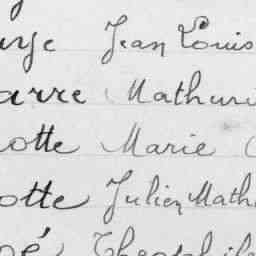 Jean Louis
arre Mathuri
otte Marie
otte Julien Math
oé Theophile